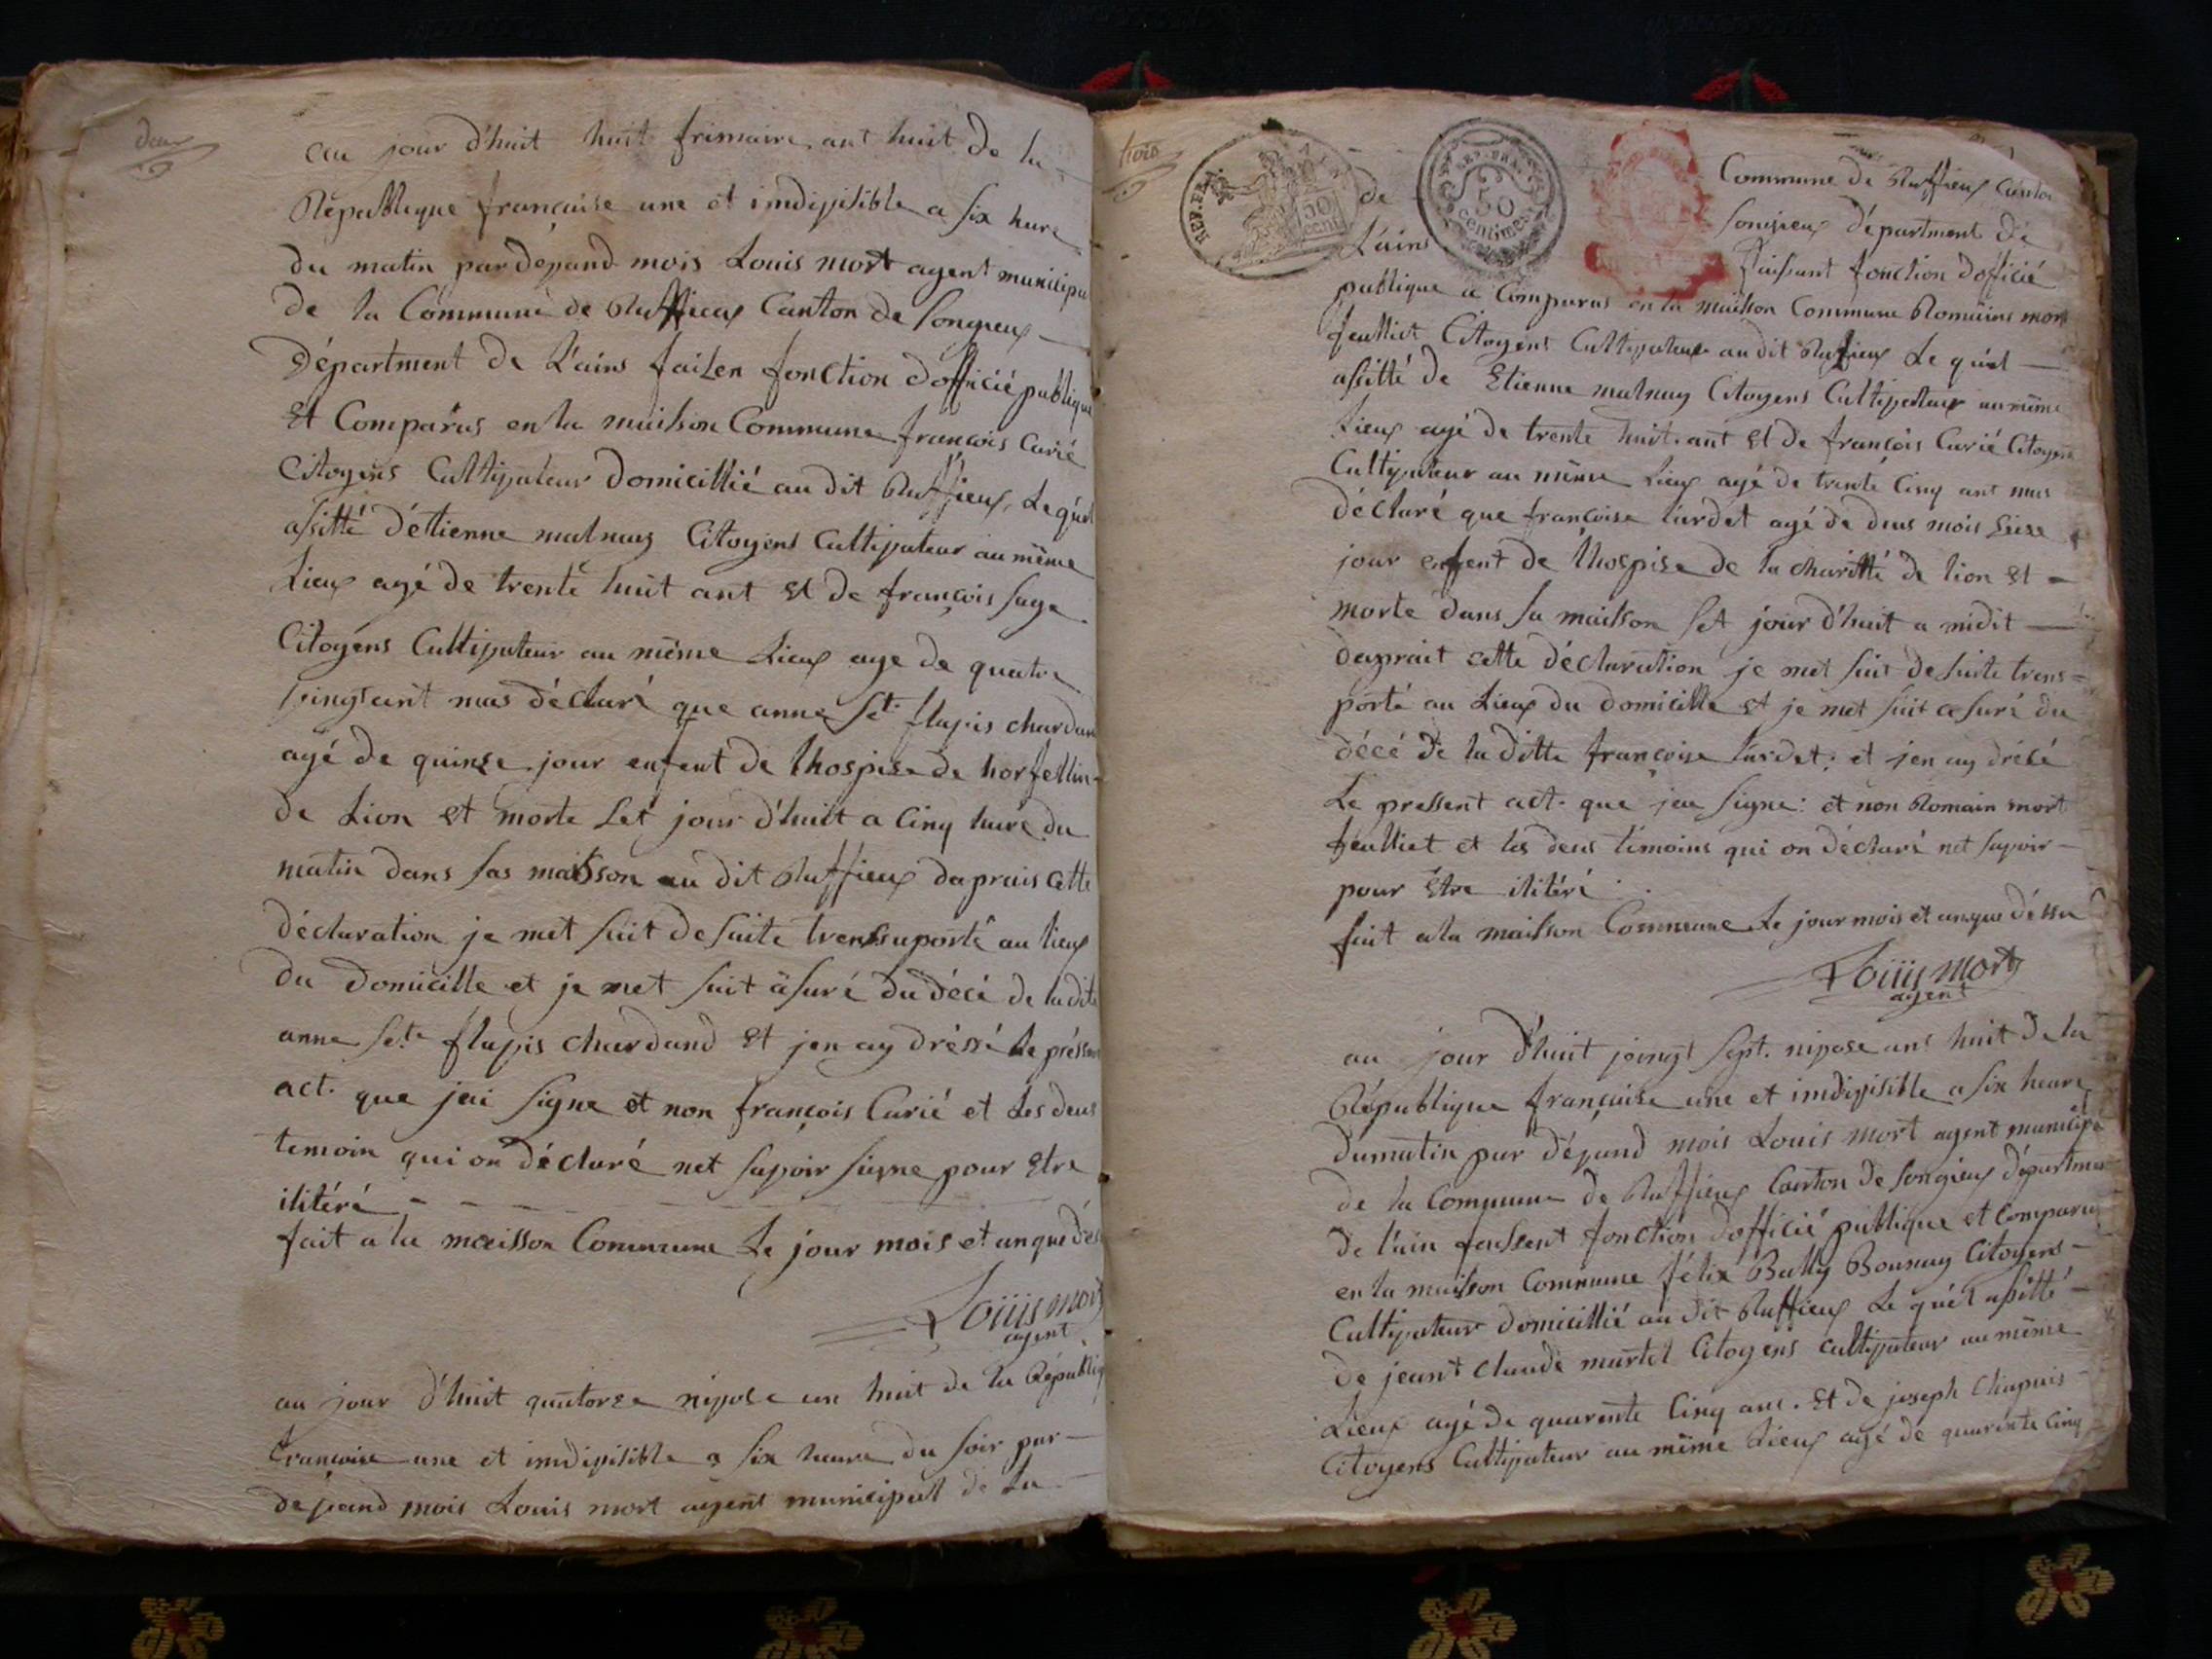 deux
au jour d'huit huit frimaire ant huit de la
République francaise une et imdivisible a six hure
du matin par dévand mois Louis mort agent municipa
de la Commune de Ruffieux Canton de Songieux
département de L'ains faisen fonction d'officié publique
Et Comparus en la maisson Commune francois Curié
Citoyens Cultivateur domicillié au dit Ruffieux, Le quel
assitté d'étienne malnuy Citoyens Cultivateur au même
Lieux agé de trente huit ant Et de françois Sage
Citoyens Cultivateur au même Lieux age de quatre
vingt ant mas déclaré que anne Set. flavis chardan
agé de quinse jour enfent de lhospise de horfellin
de Lion Et morte Set jour d'huit a Cinq huré du
matin dans sas maisson au dit Ruffieux daprais cette
déclaration je met suit de suite trenssuporté au lieux
du domicille et je met suit asuré du décé de la dite
anne Sete flavis chardand Et jen ay dréssé le préssen
act. que jai signe et non francois Curié et Les deus
temoin qui on déclaré net savoir signe pour Etre
ilitéré - - - -
fait a la maisson Commune Le jour mois et anque dés
Loiiis mort
agent
au jour d'huit quatorze nivose an huit de la Républiq
francoise une et imdivisible a six heure du soir par
devand mois Louis mort agent municipal de La
trois
REP. FRA.
50
cent
REP. FRA.
50
centimes
Commune de Ruffieux Canton
de Songieux département de
L'ains faissant fonction d'officié
publique a Comparus en la maisson Commune Romains mort
feulliet Citoyent Cultivateur au dit Rufieux Le quel
assitté de Etienne malnuy Citoyens Cultivateur au même
Lieux agé de trente huit ant Et de françois Curié Citoyens
Cultivateur au même Lieux agé de trente Cinq ant mas
déclaré que francoise turdet agé de deus mois seise
jour enfent de lhospise de la charitté de lion Et
morte dans sa maisson Set jour d'huit a midit
daprait cette déclaration je met suit de suite trens=
porté au Lieux du domicille Et je met suit asuré du
décé de la ditte francoise turdet, et jen ay drésé
Le pressent act. que jai signe: et non Romain mort
feulliet et les deus témoins qui on déclaré net savoir
pour Etre ilitéré
fait a la maisson Commune Le jour mois et anque déssu
Loiiis mort
agent
au jour d'huit vingt sept. nivose ant huit de la
République françaisse une et imdivisible a six heure
dumatin par dévand mois Louis mort agent municipa
de la Commune de Ruffieux Canton de Songieux départmen
de l'ain faissent fonction d'officié publique et Comparus
en la maisson Commune félix Bally Bounay Citoyens
Cultivateur domicillié au dit Ruffieux Le quel assitté
de jeant Claude martel Citoyens cultivateur au même
Lieux agé de quarente Cinq ans. Et de joseph Chapuis
Citoyens Cultivateur au même Lieux agé de quarente Cinq